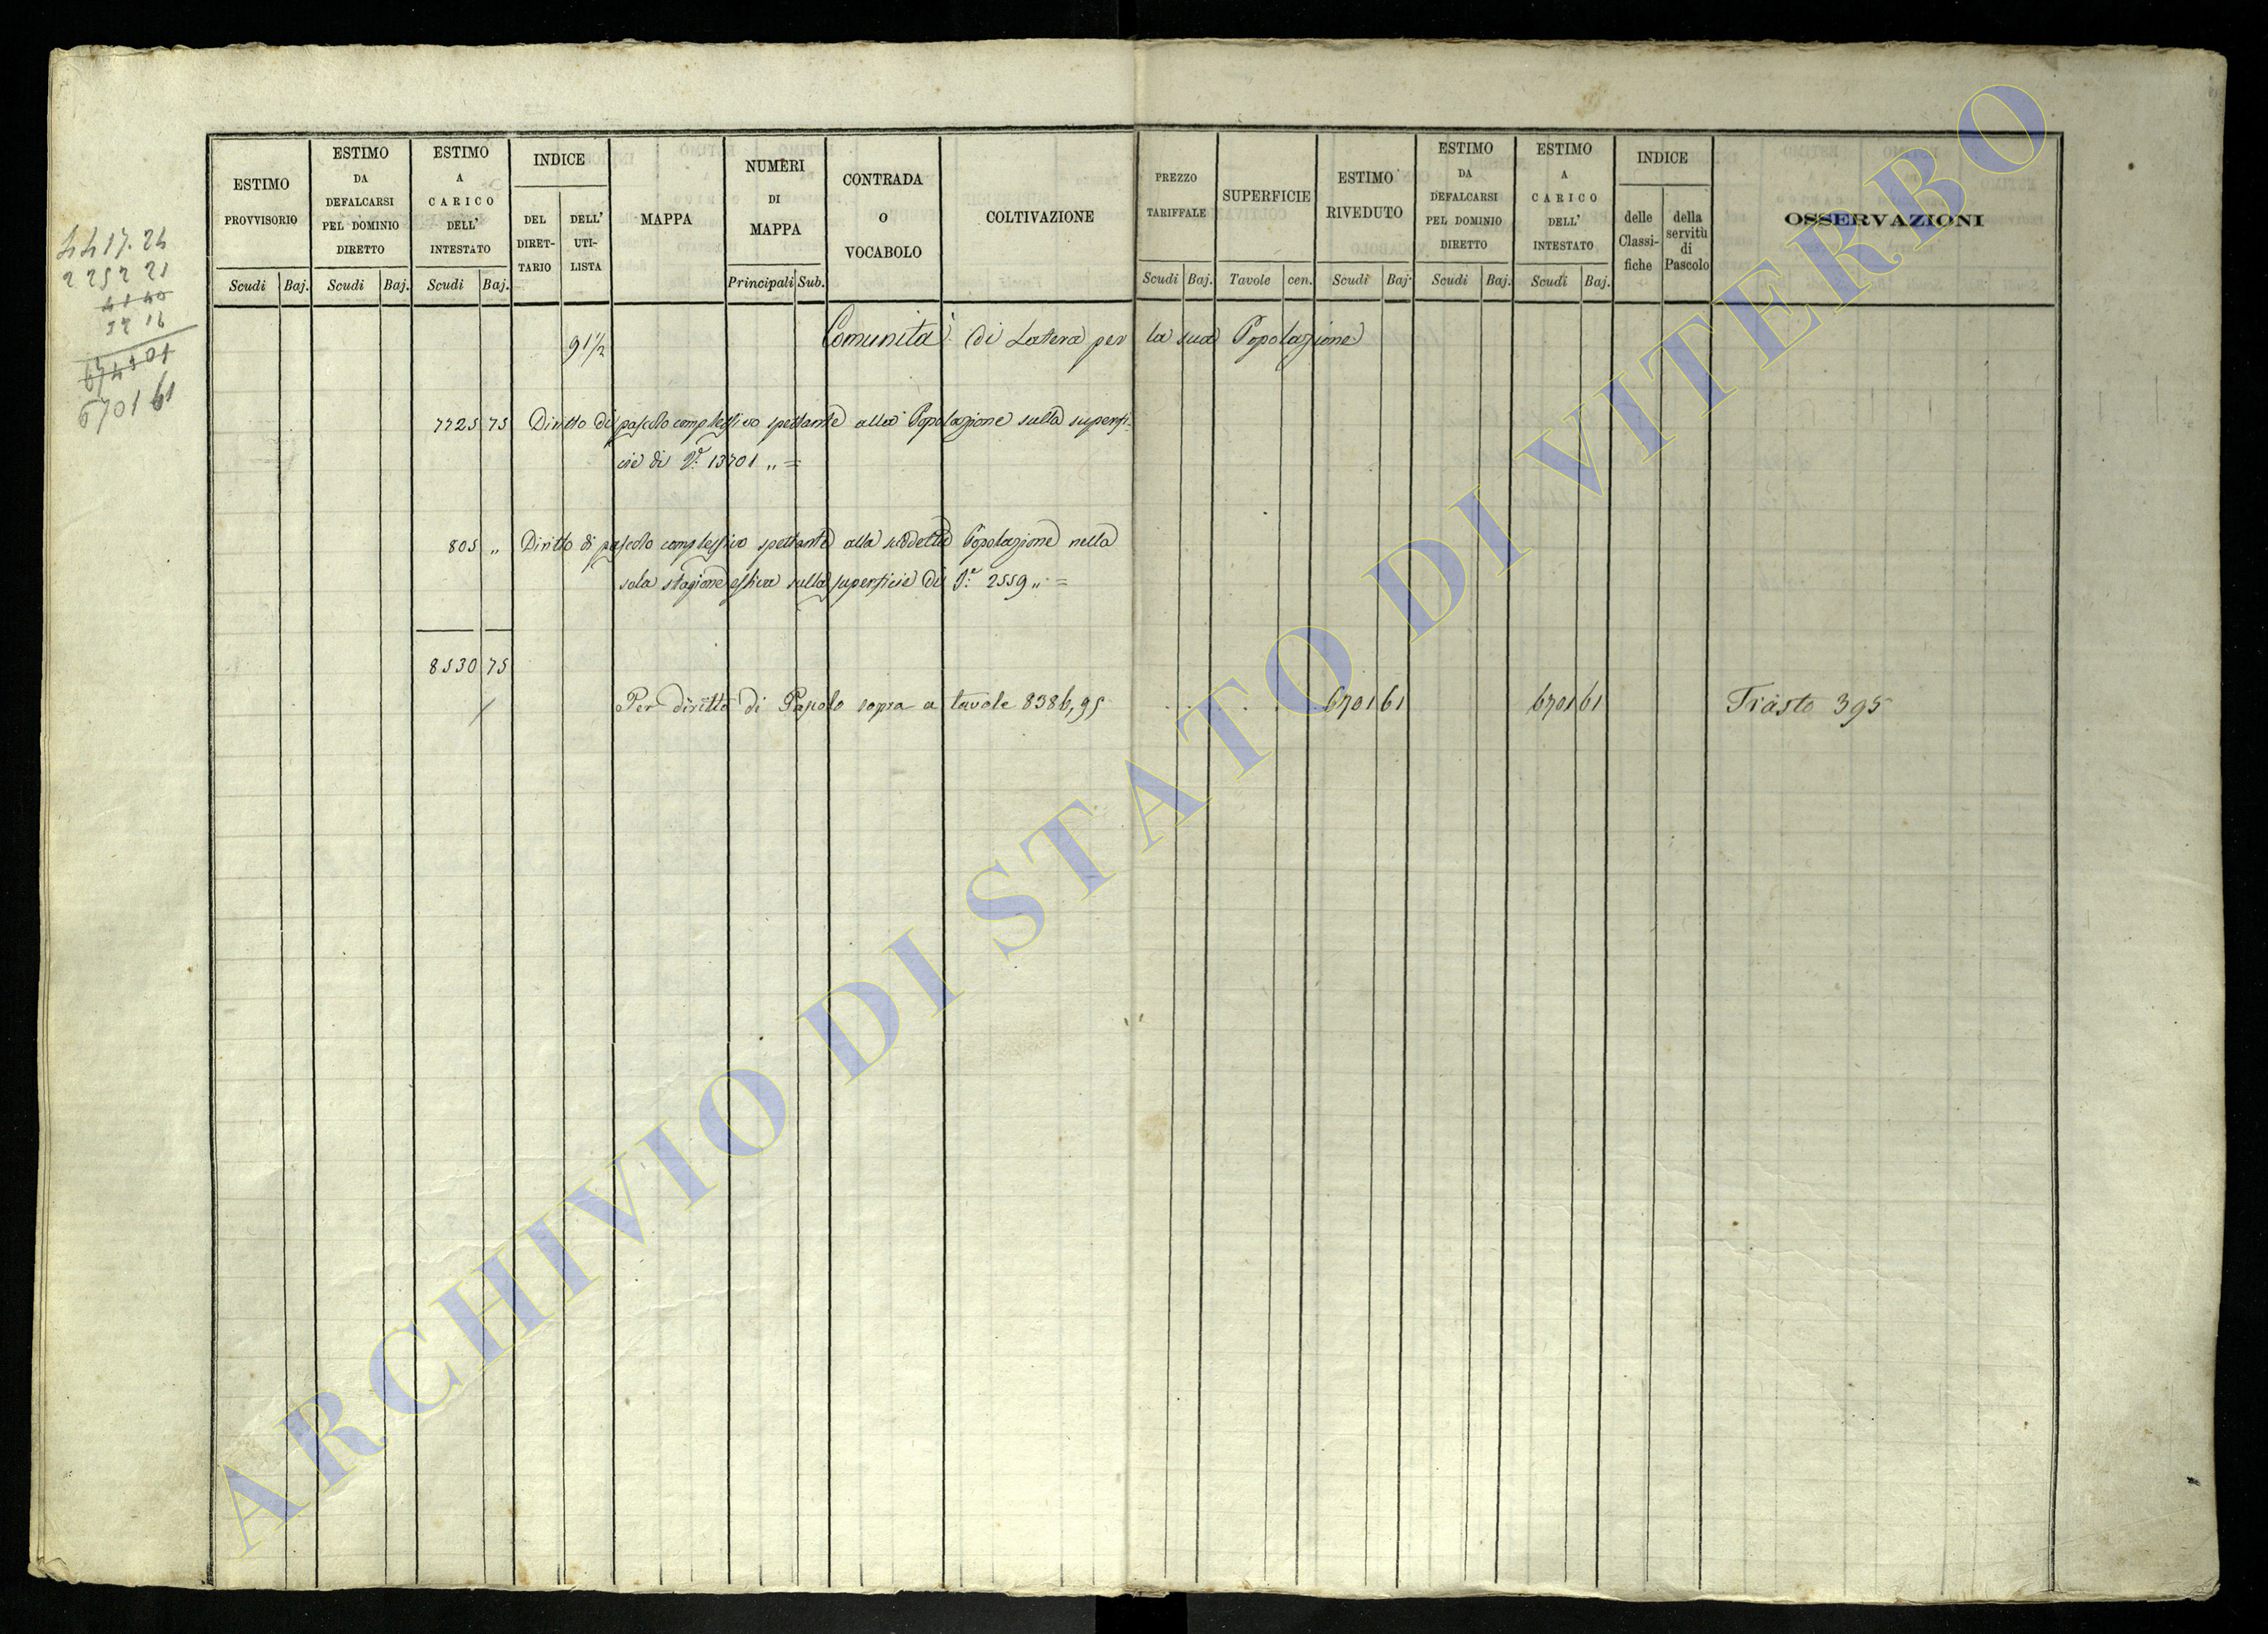 44 17. 24
2 252 21
41 40
32 16
6743 01
6701 61
ESTIMO PROVVISORIO
ESTIMO DA DEFALCARSI PEL DOMINIO DIRETTO
ESTIMO A CARICO DELL' INTESTATO
INDICE
DEL DIRET-TARIO
DELL' UTI-LISTA
MAPPA
NUMERI DI MAPPA
CONTRADA O VOCABOLO
COLTIVAZIONE
PREZZO TARIFFALE
SUPERFICIE
ESTIMO RIVEDUTO
ESTIMO DA DEFALCARSI PEL DOMINIO DIRETTO
ESTIMO A CARICO DELL' INTESTATO
INDICE
delle Classi-fiche
della servitù di Pascolo
OSSERVAZIONI
Scudi Baj. Scudi Baj. Scudi Baj. Principali Sub. Scudi Baj. Tavole cen. Scudi Baj. Scudi Baj. Scudi Baj.
91 1/2 Comunità di Latera per la sua Popolazione
7725 75 Diritto di pascolo complessivo spettante alla Popolazione sulla superfi-
cie di T.e 13701 „ =
805 „ Diritto di pascolo complessivo spettante alla suddetta Popolazione nella
sola stagione estiva sulla superficie di T.e 2559 „ =
8530 75
Per diritto di Pascolo sopra a tavole 8386,95 6701 61 6701 61 Trasto 395
ARCHIVIO DI STATO DI VITERBO